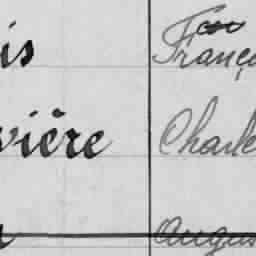 is Franço
vière Charle
Augus